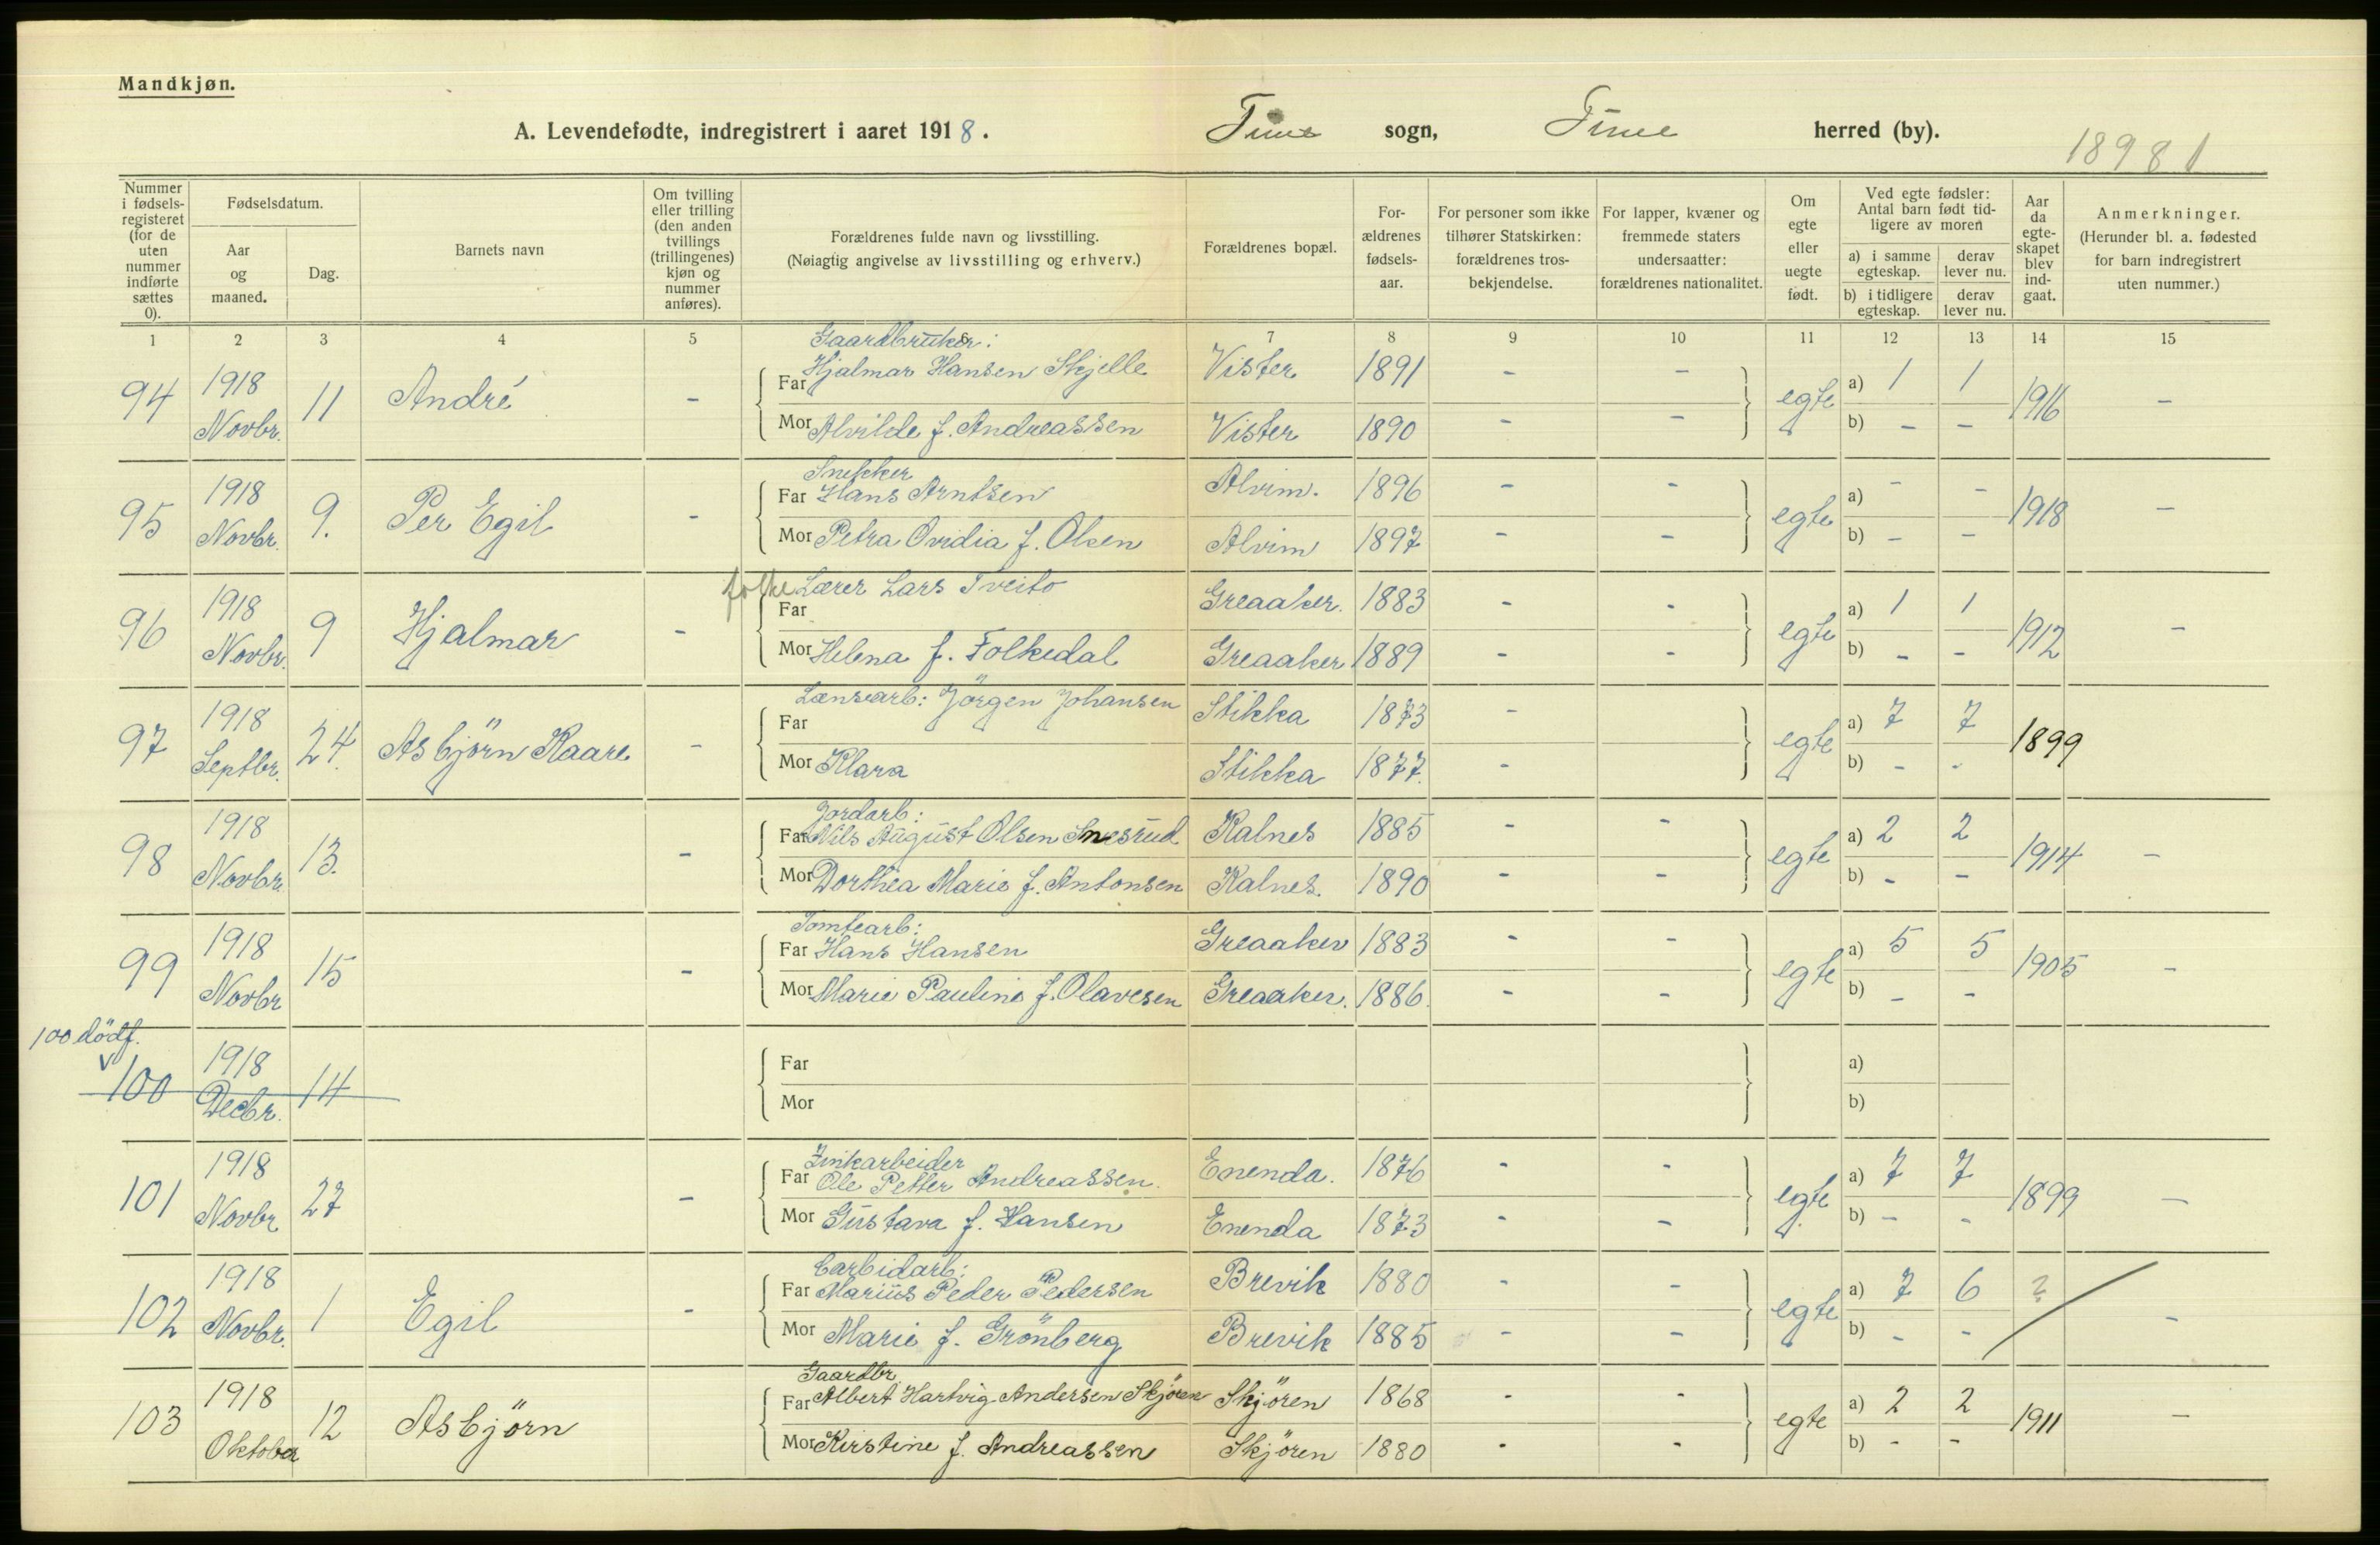 Mandkjøn.
A. Levendefødte, indregistrert i aaret 1918. Tune sogn, Tune herred (by).
18981
Nummer i fødsels-registeret (for de uten nummer indførte sættes 0).
Fødselsdatum.
Aar og maaned.
Dag.
Barnets navn
Om tvilling eller trilling (den anden tvillings (trillingenes) kjøn og nummer anføres).
Forældrenes fulde navn og livsstilling.
(Nøiagtig angivelse av livsstilling og erhverv.)
Forældrenes bopæl.
For-ældrenes fødsels-aar.
For personer som ikke tilhører Statskirken: forældrenes tros-bekjendelse.
For lapper, kvæner og fremmede staters undersaatter: forældrenes nationalitet.
Om egte eller uegte født.
Ved egte fødsler: Antal barn født tid-ligere av moren
a) i samme egteskap. derav lever nu.
b) i tidligere egteskap. derav lever nu.
Aar da egte-skapet blev ind-gaat.
Anmerkninger.
(Herunder bl. a. fødested for barn indregistrert uten nummer.)
1 2 3 4 5 6 7 8 9 10 11 12 13 14 15
Gaardbruker:
94 1918 Novbr. 11 André - Far Hjalmar Hansen Skjelle Vister 1891 - - egte a) 1 1 1916 -
Mor Alvilde f. Andreassen Vister 1890 - - b) - -
Snekker
95 1918 Novbr. 9. Per Egil - Far Hans Arntsen Alvim. 1896 - - egte a) - - 1918 -
Mor Petra Ovidia f. Olsen Alvim 1897 - - b) - -
folke Lærer Lars Tveito
96 1918 Novbr. 9 Hjalmar - Far Greaaker. 1883 - - egte a) 1 1 1912 -
Mor Helena f. Folkedal Greaaker 1889 - - b) - -
Lænsearb: Jörgen Johansen
97 1918 Septbr. 24. Asbjörn Kaare - Far Stikka 1873 - egte a) 7 7 1899
Mor Klara Stikka 1877. - b) - -
Jordarb:
98 1918 Novbr. 13. - Far Nils August Olsen Snesrud Kalnes 1885 - - egte a) 2 2 1914 -
Mor Dorthea Marie f. Antonsen Kalnes. 1890 - - b) - -
Tomtearb:
99 1918 Novbr 15 - Far Hans Hansen Greaaker 1883 - - egte a) 5 5 1905 -
Mor Marie Pauline f. Olavesen Greaaker. 1886. - - b) - -
100 dödf.
v
100 1918 Decbr. 14 Far a)
Mor b)
Zinkarbeider
101 1918 Novbr. 27 - Far Ole Petter Andreassen. Enenda. 1876 - - egte a) 7 7 1899 -
Mor Gustava f. Hansen Enenda 1873 - - b) - -
Carbidarb:
102 1918 Novbr. 1 Egil - Far Marius Peder Pedersen Brevik 1880 - - egte a) 7 6 ? -
Mor Marie f. Grönberg Brevik 1885 - - b) - -
Gaardbr.
103 1918 Oktober 12 Asbjörn Far Albert Hartvig Andersen Skjören Skjören 1868 - - egte a) 2 2 1911 -
Mor Kirstine f. Andreassen Skjören 1880 - - b) - -